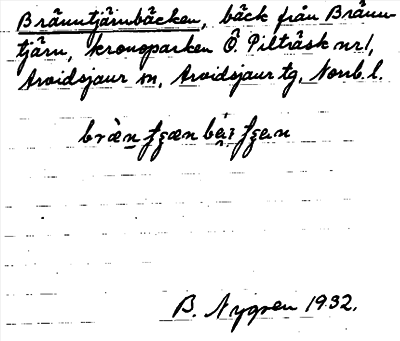 Bränntjärnbäcken, bäck från Bränn-
tjärn, kronoparken Ö. Pilträsk nr 1,
Arvidsjaur sn, Arvidsjaur tg, Norrb. l.
B. Nygren 1932.